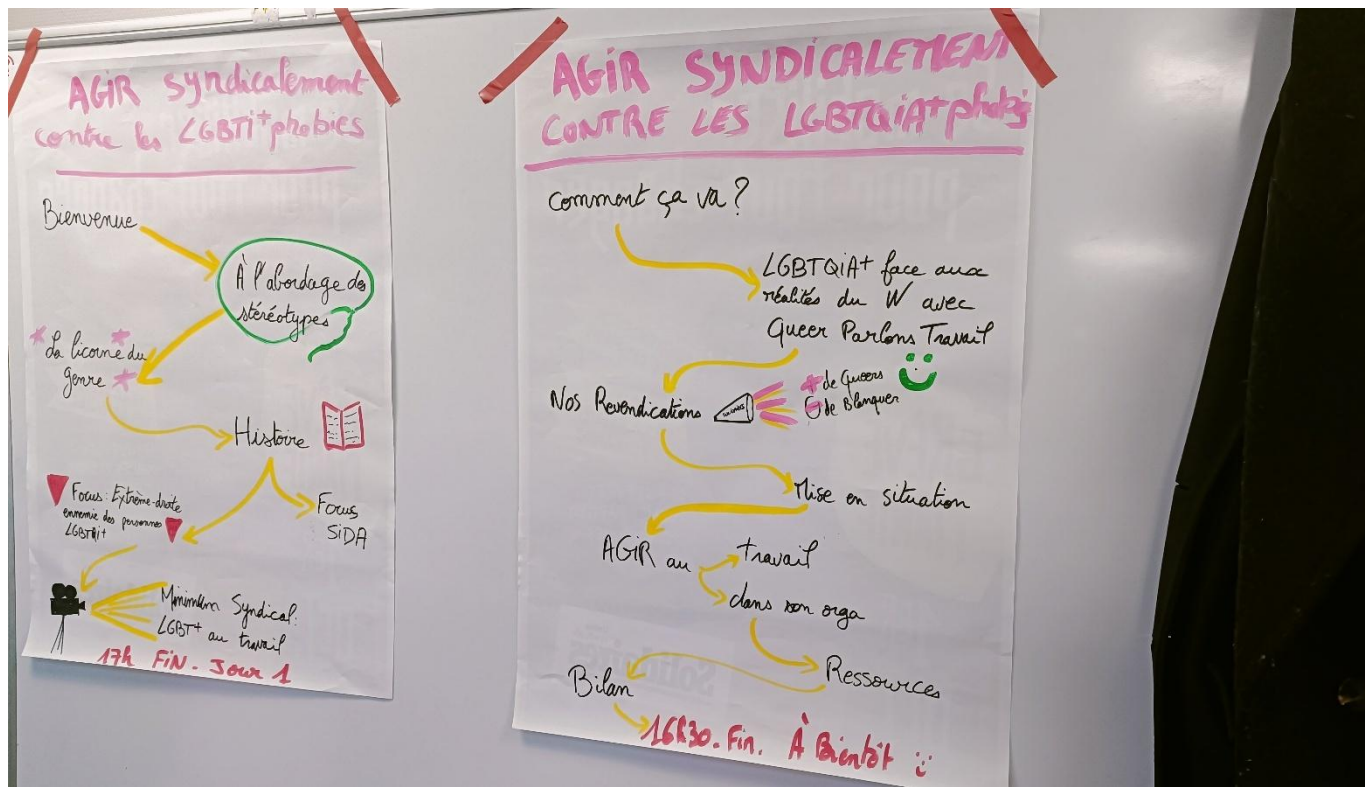 AGIR syndicalement
contre les LGBTI+phobies
Bienvenue
À l'abordage des
stéréotypes
La licorne du
genre
Histoire
Focus : Extrême-droite
ennemie des personnes
LGBTQI+
Focus
SIDA
Minimum Syndical :
LGBT+ au travail
17h FIN - Jour 1
AGIR SYNDICALEMENT
CONTRE LES LGBTQIA+phobies
Comment ça va ?
LGBTQIA+ face aux
réalités du W avec
Queer Parlons Travail
Nos Revendications
+ de Queers
- de Blanquer
Mise en situation
AGIR au travail
dans son orga
Ressources
Bilan
16h30. Fin. À Bientôt
Solidaires